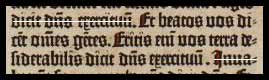 dicit dñs exercituũ. Et beatos vos di-
cẽt om̃es gẽtes. Eritis eni̅ vos terra de-
siderabilis dicit dñs exercituũ.